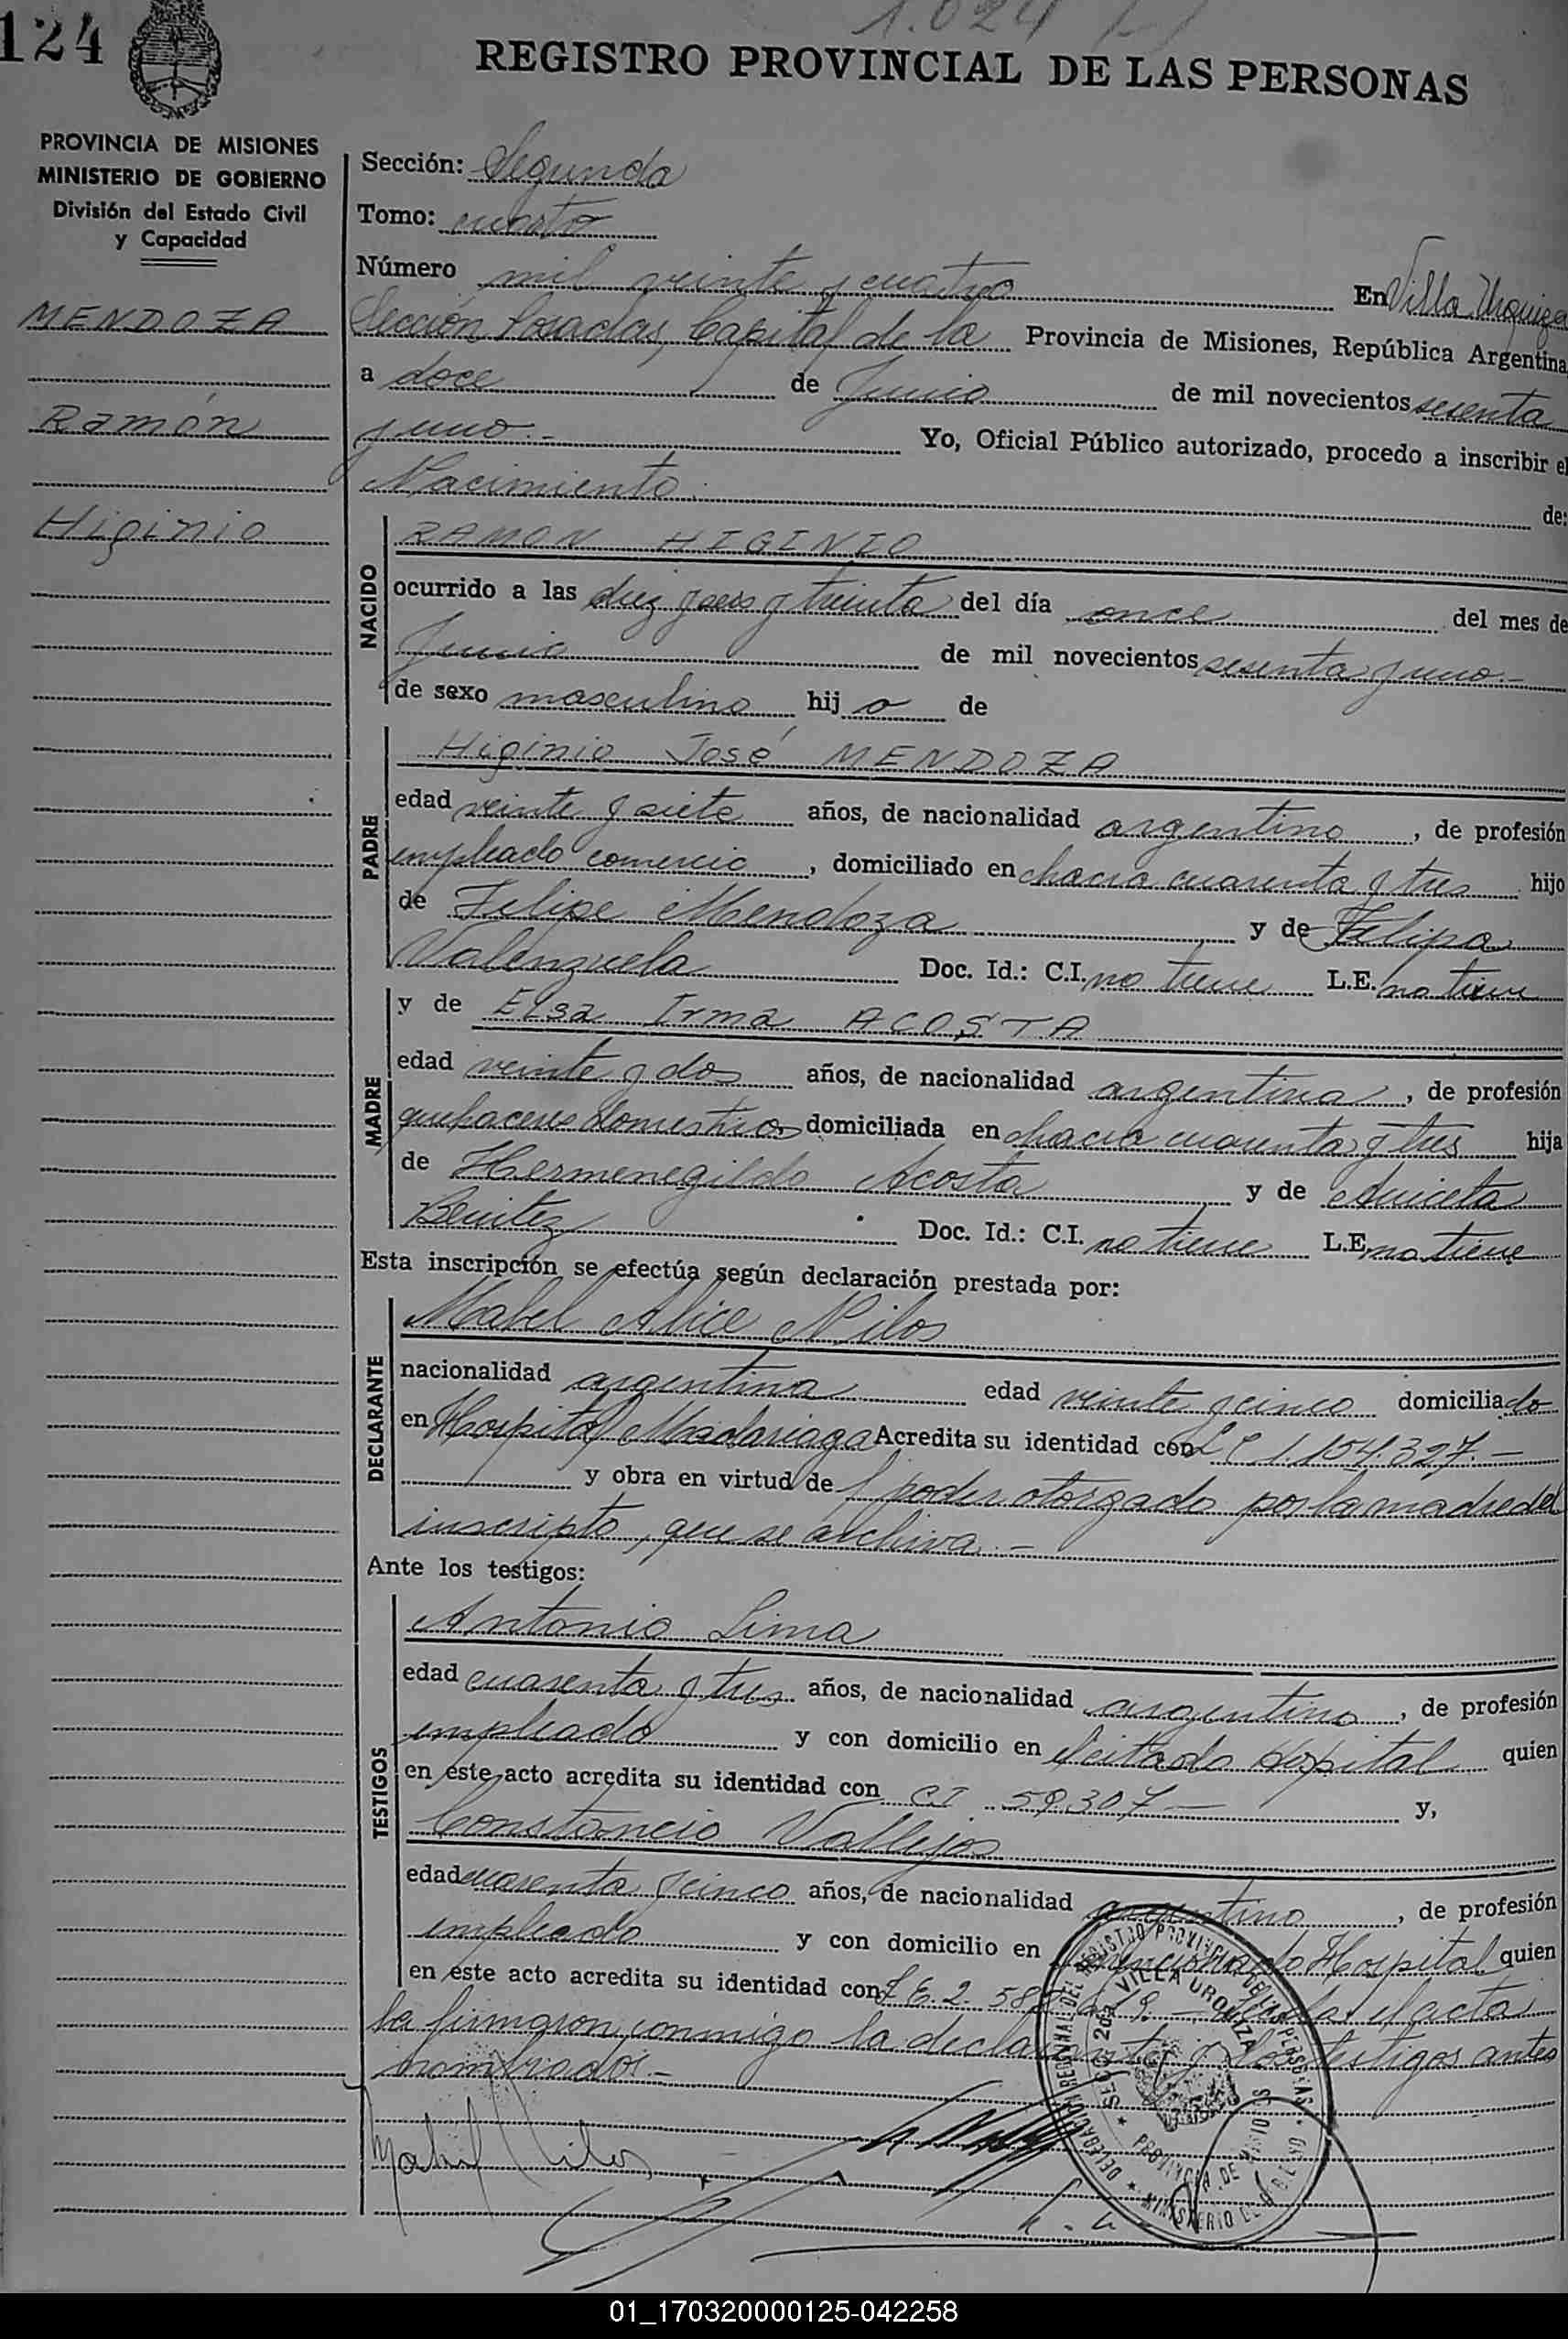 124
1.024
REGISTRO PROVINCIAL DE LAS PERSONAS
PROVINCIA DE MISIONES
MINISTERIO DE GOBIERNO
División del Estado Civil
y Capacidad
MENDOZA
Ramón
Higinio
Sección: Segunda
Tomo: cuarto
Número mil veinte y cuatro En Villa Urquiza
Sección Posadas, Capital de la Provincia de Misiones, República Argentina
a doce de Junio de mil novecientos sesenta
y uno.- Yo, Oficial Público autorizado, procedo a inscribir el
Nacimiento. de:
NACIDO
RAMON HIGINIO
ocurrido a las diez y seis y treinta del día once del mes de
Junio de mil novecientos sesenta y uno.-
de sexo masculino hijo de
PADRE
Higinio José MENDOZA
edad veinte y siete años, de nacionalidad argentino, de profesión
empleado comercio, domiciliado en chacra cuarenta y tres hijo
de Felipe Mendoza y de Felipa
Valenzuela Doc. Id.: C.I. no tiene L.E. no tiene
MADRE
y de Elsa Irma ACOSTA
edad veinte y dos años, de nacionalidad argentina, de profesión
quehaceres domesticos domiciliada en chacra cuarenta y tres hija
de Hermenegildo Acosta y de Aniceta
Benitez Doc. Id.: C.I. no tiene L.E. no tiene
Esta inscripción se efectúa según declaración prestada por:
DECLARANTE
Mabel Alice Nilos
nacionalidad argentina edad veinte y cinco domiciliado
en Hospital Madariaga Acredita su identidad con L C 1.154.327.-
y obra en virtud de poder otorgado por la madre del
inscripto, que se archiva.-
Ante los testigos:
TESTIGOS
Antonio Lima
edad cuarenta y tres años, de nacionalidad argentino, de profesión
empleado y con domicilio en citado Hospital quien
en este acto acredita su identidad con C.I. 59.307- y,
Constancio Vallejos
edad cuarenta y cinco años, de nacionalidad argentino, de profesión
empleado y con domicilio en mencionado Hospital quien
en este acto acredita su identidad con L E. 2. el acta
la firmaron conmigo la declarante y los testigos antes
nombrados.-
Mabel Nilos
DELEGACION REGIONAL DEL REGISTRO PROVINCIAL DE LAS PERSONAS
SECC. 2da VILLA URQUIZA
PROVINCIA DE MISIONES
MINISTERIO DE GOBIERNO
01_170320000125-042258